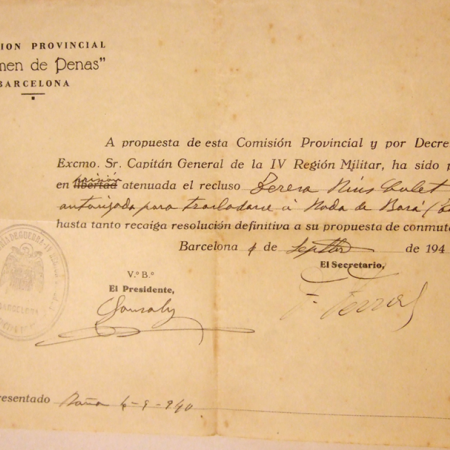 ION PROVINCIAL
men de Penas"
BARCELONA
A propuesta de esta Comisión Provincial y por Decre
Excmo. Sr. Capitán General de la IV Región Militar, ha sido p
en prisión libertad atenuada el recluso Teresa Rius
autorizada para trasladarse á Roda de Bará
hasta tanto recaiga resolución definitiva a su propuesta de conmut
Barcelona 4 de Septbre 194
V.º B.º
El Presidente,
El Secretario,
BARCELONA
F. Ferrer
resentado 6-9-940